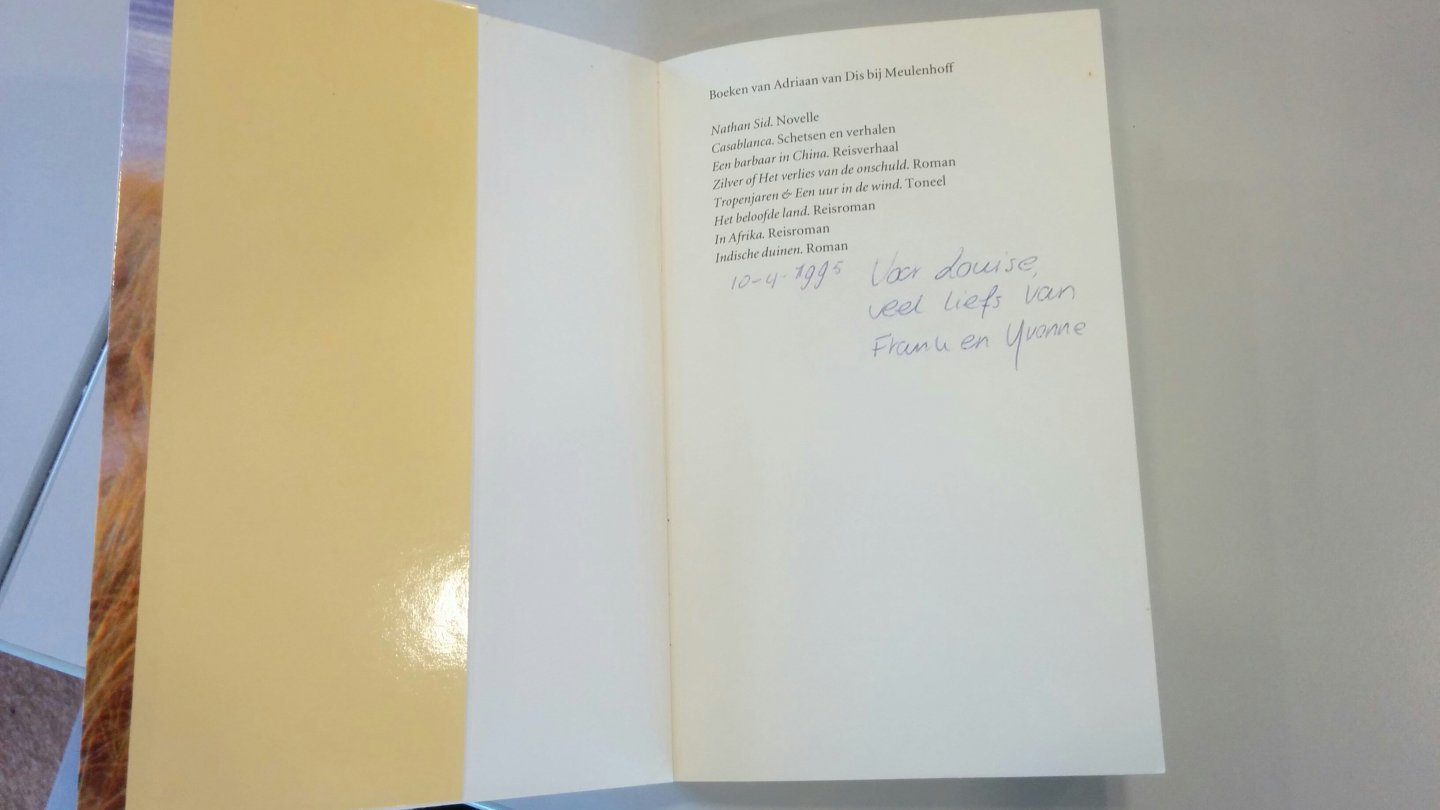 Boeken van Adriaan van Dis bij Meulenhoff
Nathan Sid. Novelle
Casablanca. Schetsen en verhalen
Een barbaar in China. Reisverhaal
Zilver of Het verlies van de onschuld. Roman
Tropenjaren & Een uur in de wind. Toneel
Het beloofde land. Reisroman
In Afrika. Reisroman
Indische duinen. Roman
10-4-1995 Voor Louise,
veel liefs van
Frank en Yvonne